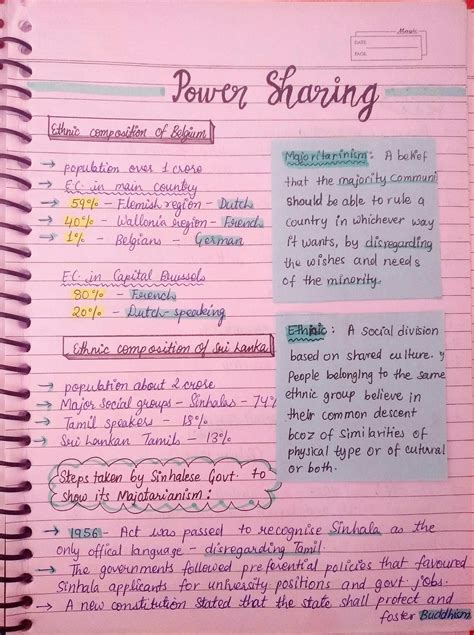 Magic
DATE
PAGE
Power Sharing
Ethnic composition of Belgium
→ population over 1 crore
→ E.C. in main country
→ 59% - Flemish region - Dutch
→ 40% - Wallonia region - French
→ 1% - Belgians - German
E.C. in Capital Brussels
80% - French
20% - Dutch-speaking
Majoritarinism: A belief
that the majority communi
should be able to rule a
country in whichever way
it wants, by disregarding
the wishes and needs
of the minority.
Ethnic composition of Sri Lanka
→ population about 2 crore
→ Major social groups - Sinhalas - 74%
→ Tamil speakers - 18%
→ Sri Lankan Tamils - 13%
Ethnic: A social division
based on shared culture.
People belonging to the same
ethnic group believe in
their common descent
bcoz of similarities of
physical type or of cultural
or both.
Steps taken by Sinhalese Govt. to
show its Majotarianism:
→ 1956 - Act was passed to recognise Sinhala as the
only offical language - disregarding Tamil.
→ The governments followed preferential policies that favoured
Sinhala applicants for university positions and govt. jobs.
→ A new constitution stated that the state shall protect and
foster Buddhism